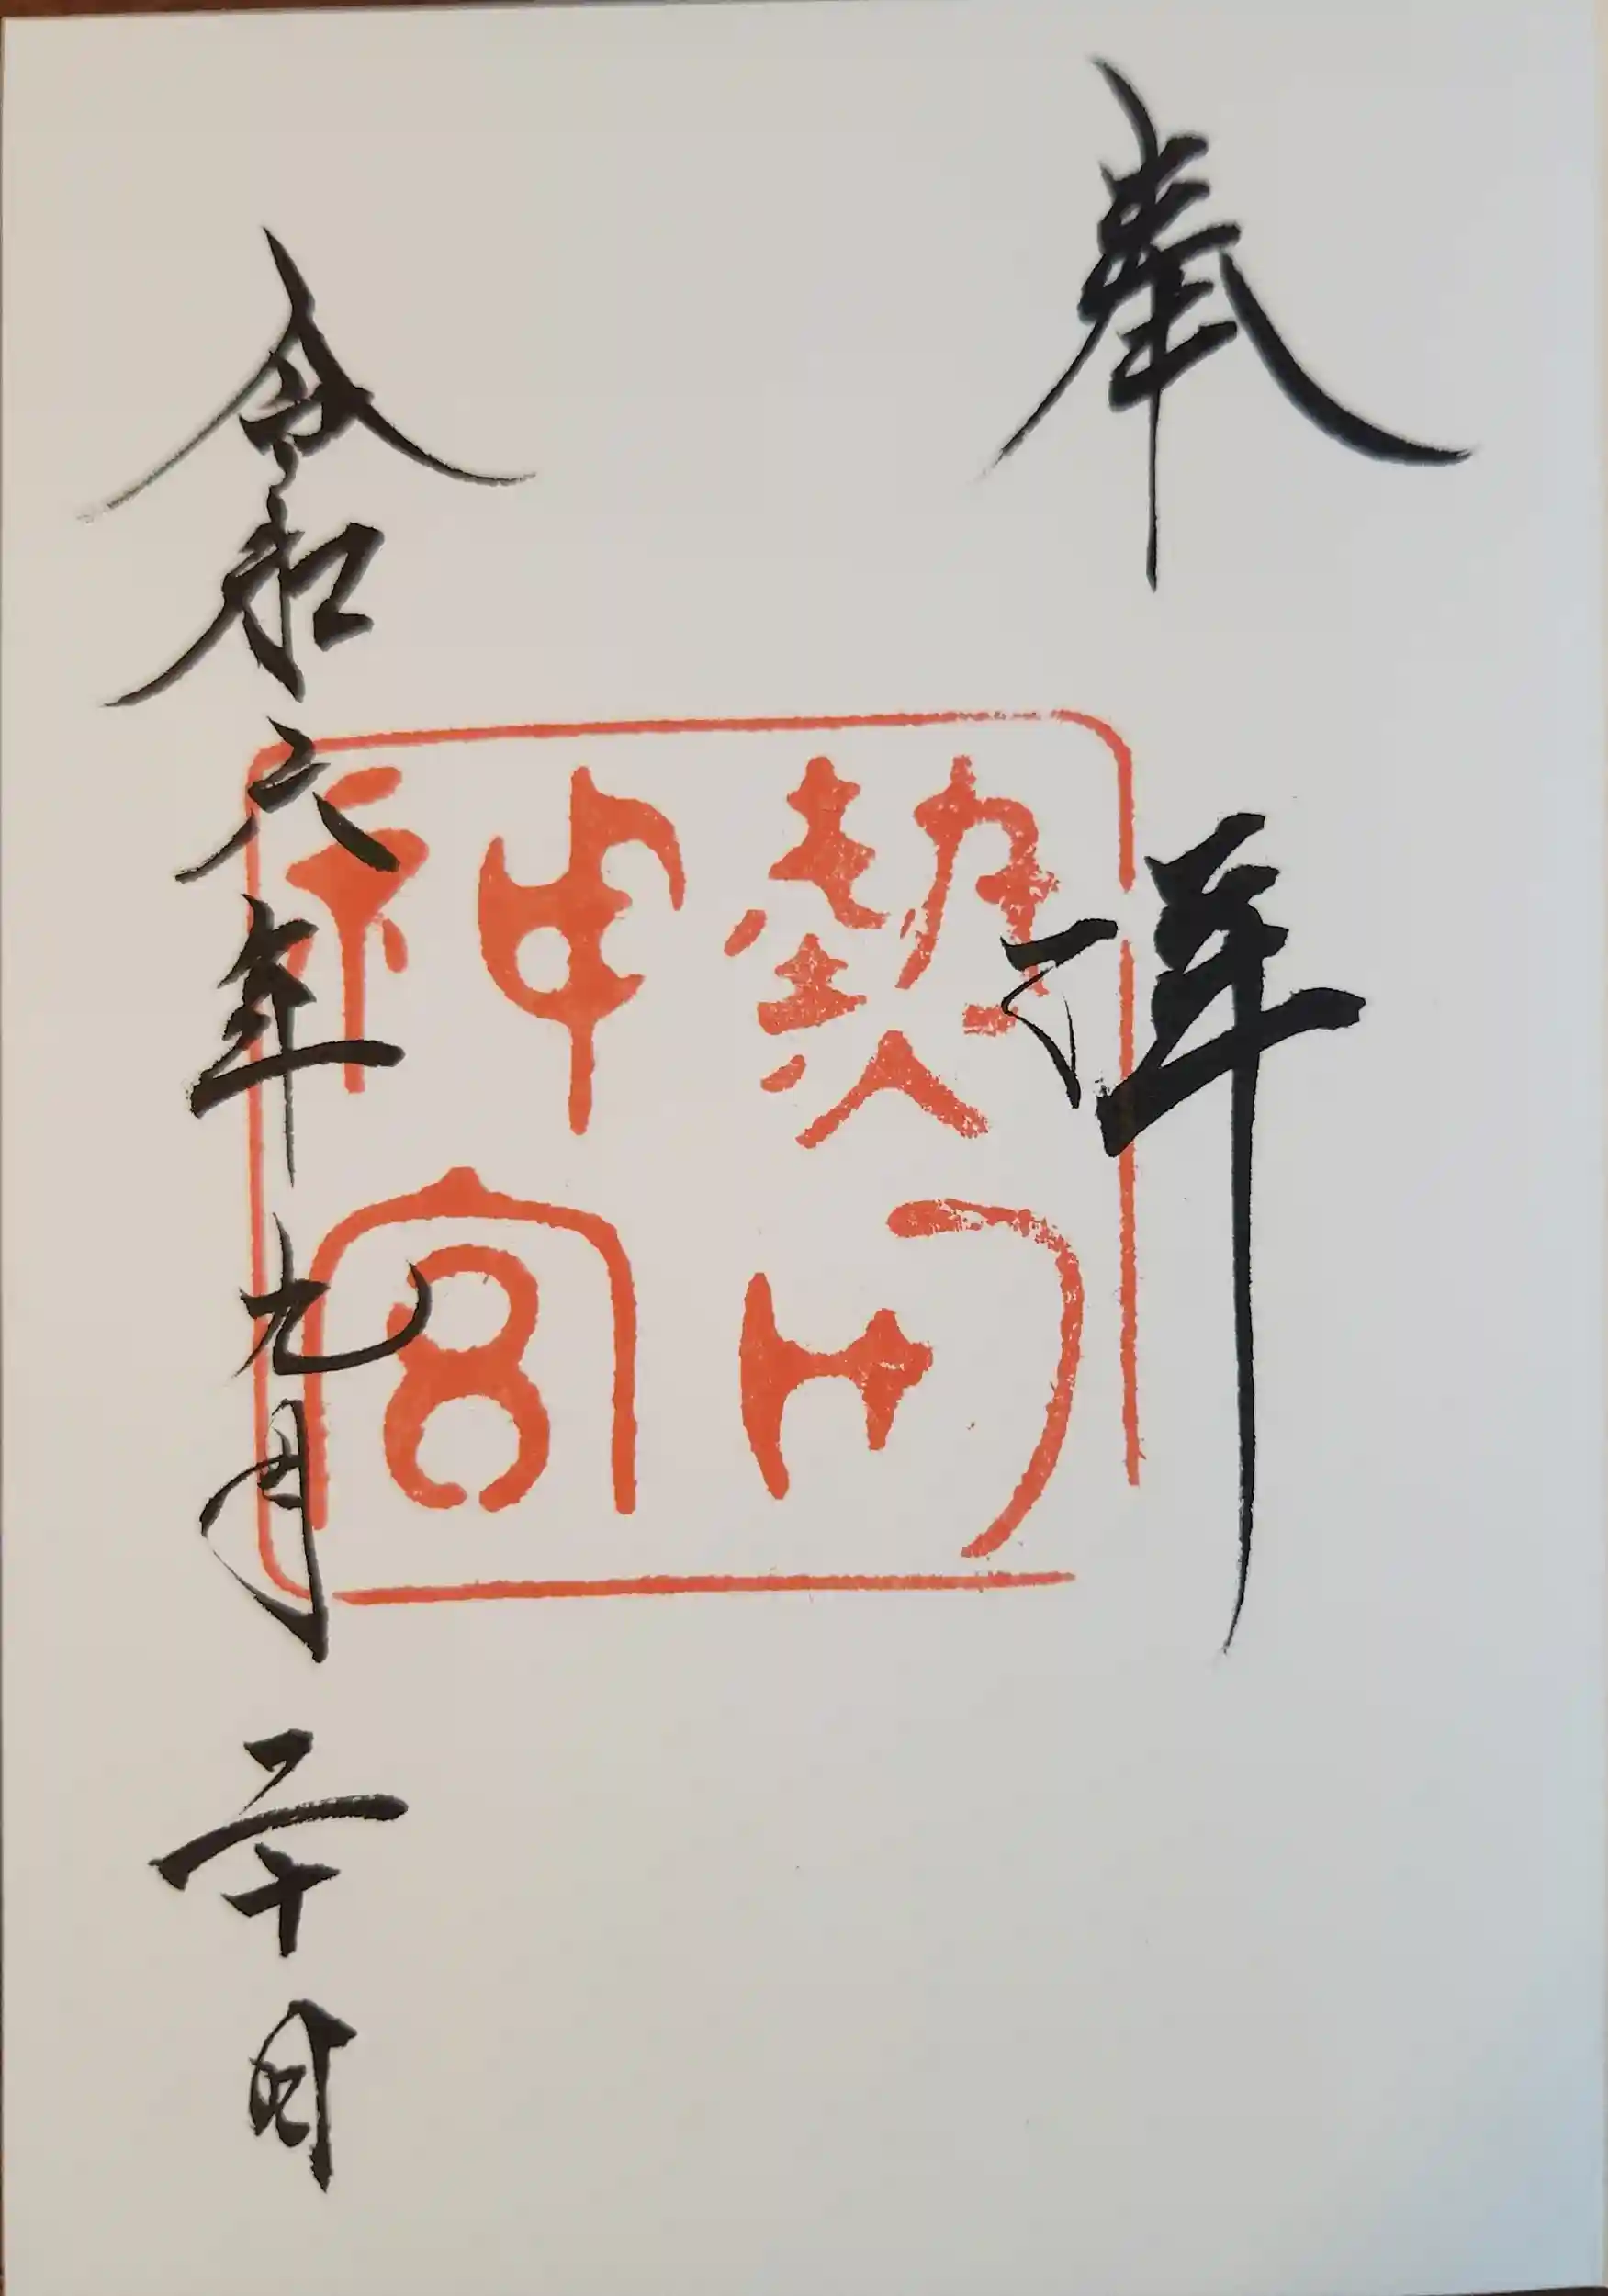 奉拝
熱田
神宮
令和六年九月二十日